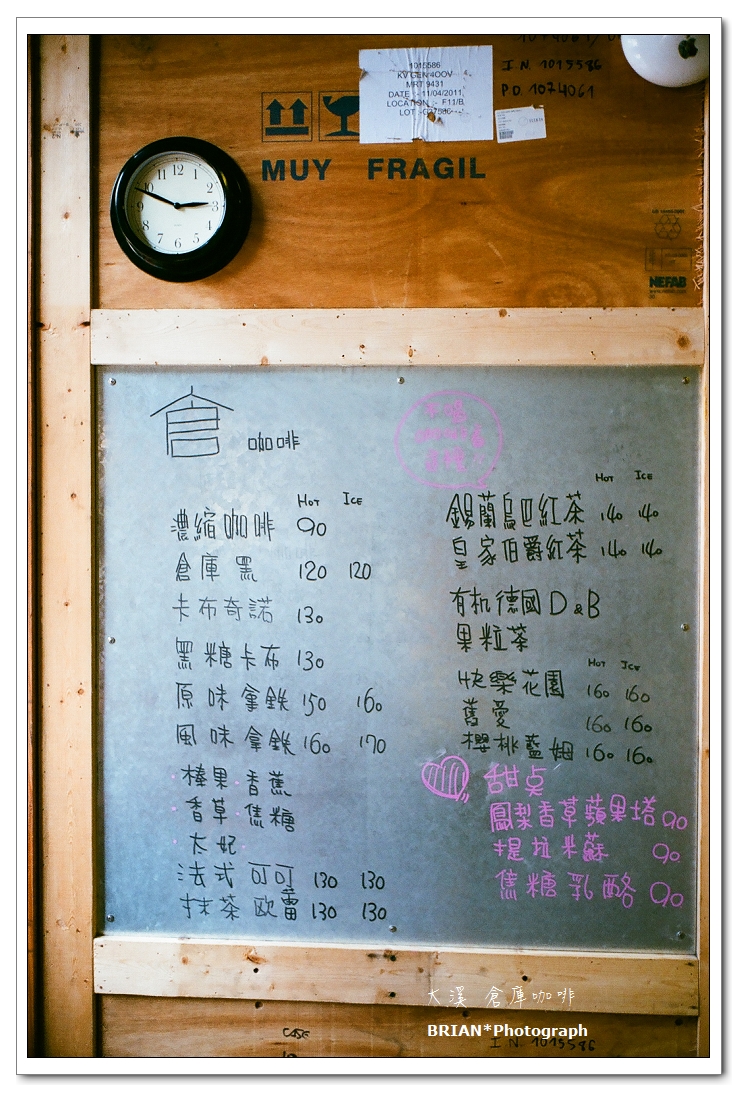 IN 1015586
PO 1074061
1015586
KV GEN 400V
MRT 9431
DATE :- 11/04/2011
LOCATION :- F11/B
MUY FRAGIL
12
11 1
10 2
9 3
8 4
7 6 5
NEFAB
倉 咖啡
HOT ICE
濃縮咖啡 90
倉庫 黑 120 120
卡布奇諾 130
黑糖卡布 130
原味拿鐵 150 160
風味拿鐵 160 170
榛果·香蕉
·香草·焦糖
·太妃·
法式可可 130 130
抹茶歐蕾 130 130
HOT ICE
錫蘭烏巴紅茶 140 140
皇家伯爵紅茶 140 140
有机德國D&B
果粒茶
HOT ICE
快樂花園 160 160
舊愛 160 160
櫻桃藍姆 160 160
甜点
鳳梨香草蘋果塔 90
提拉米蘇 90
焦糖乳酪 90
大溪 倉庫咖啡
BRIAN*Photograph
CASE
IN 1015586